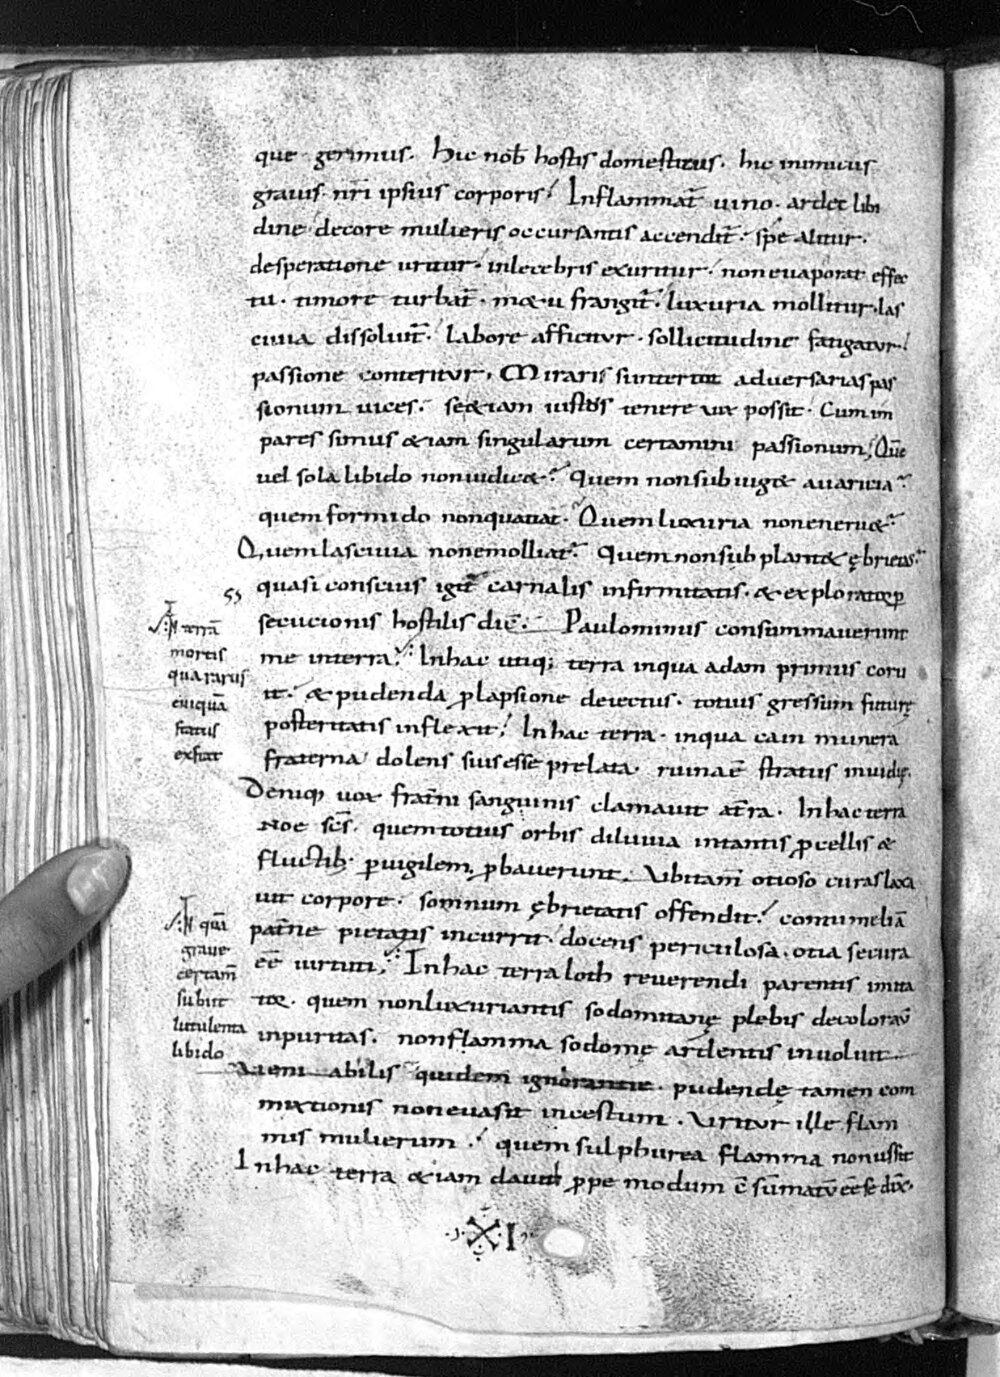 que gerimus. hic nob̄ hostis domesticus. hic inimicus
grauis nr̄i ipsius corporis. Inflammat̄ uino. ardet libi
dine decore mulieris occursantis accendit̄. spe alitur.
desperatione uritur. inlecebris exuritur. non euaporat effec
tu. timore turbat̄. m&u frangit̄. luxuria mollitur. las
ciuia dissoluit̄. labore afficitur. sollicitudine fatigatur.
passione conteritur. Miraris si interim aduersarias pas
sionum uices. se &iam iustus tenere uix possit. Cum im
pares simus &iam singularum certamini passionum. Que
uel sola libido non uidic&. Quem non subiug& auaricia.
quem formido non quatiat. Quem luxuria non eneru&.
Quem lasciuia non emolliat. Quem non supplant& ębrietas.
quasi conscius igit̄ carnalis infirmitatis. & exploratę p
secucionis hostilis dic̄. Paulominus consummauerunt
me in terra. In hac utiq; terra in qua adam primus corru
it. & pudenda plapsione deiectus. totius gressum futurę
posteritatis inflexit. In hac terra. in qua cain munera
fraterna dolens suis esse prelata. ruina ē stratus inuidię.
Deniq; uox frat̄ni sanguinis clamauit at̄ra. In hac terra
Noe scs̄. quem totius orbis diluuia intantis pcellis &
fluctib; puigilem pbauerunt. Vbi tam̄ otioso curas laxa
uit corpore. somnum ębrietatis offendit. contumeliā
pat̄ne pietatis incurrit. docens periculosa. otia secura
eē uirtuti. In hac terra loth reuerendi parentis imita
tor. quem non luxuriantis sodomitanę plebis decolorau̅
inpuritas. non flamma sodomę ardentis inuoluit.
Veniabilis quidem ignorantie. pudendę tamen com
mixtionis non euasit incestum. Vritur ille flam
mis mulierum. quem sulphurea flamma non ussit
In hac terra &iam dauid ppe modum c̄ sūmatū eē se dix̄.
N terrā
mortis
qua rarus
cuiquā
status
exstat
N quā
graue
certam̄
subiit
lutulenta
libido
XI